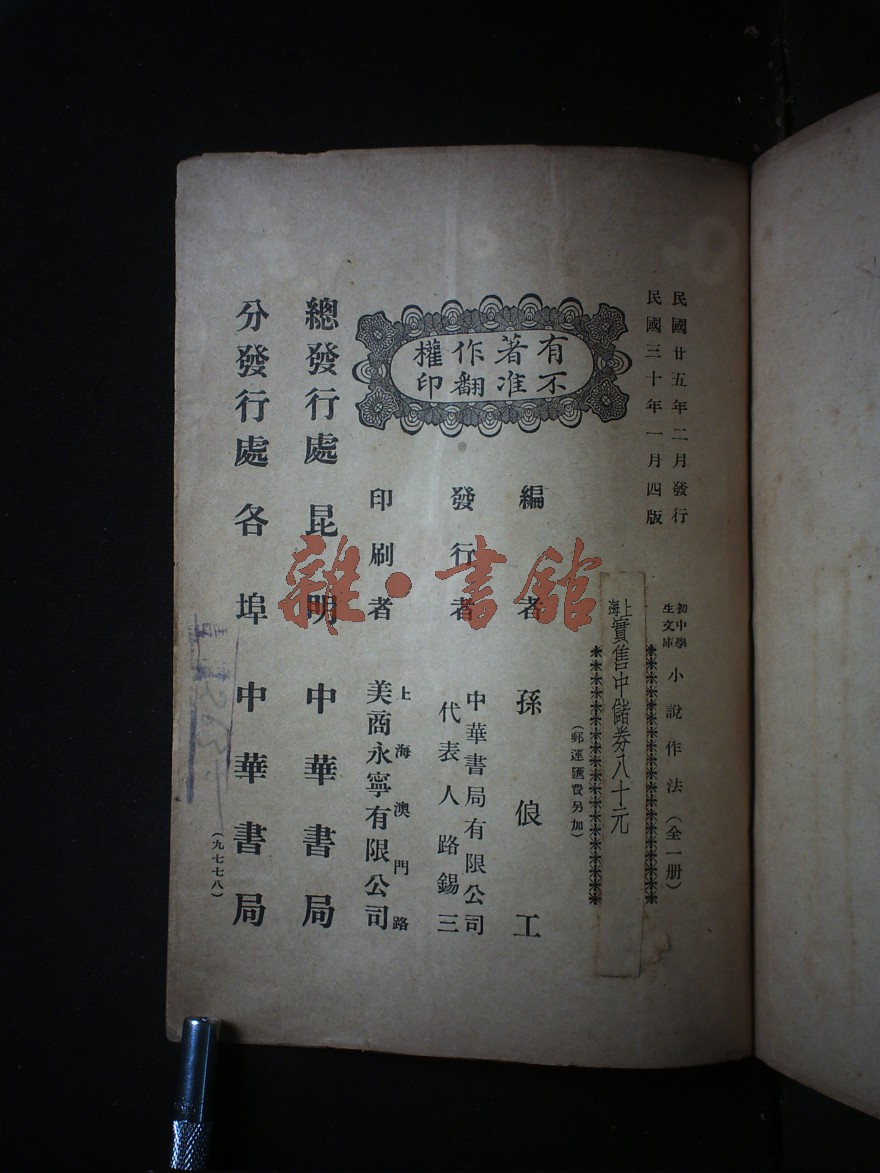 民國廿五年二月發行
民國三十年一月四版
初中學
生文庫
小說作法（全一册）
上海
實售中儲券八十元
（郵運匯費另加）
有著作權
不准翻印
編者 孫俍工
發行者 中華書局有限公司
代表人路錫三
印刷者 上海澳門路
美商永寧有限公司
總發行處 昆明 中華書局
分發行處 各埠 中華書局
（九七七八）
雜·書館